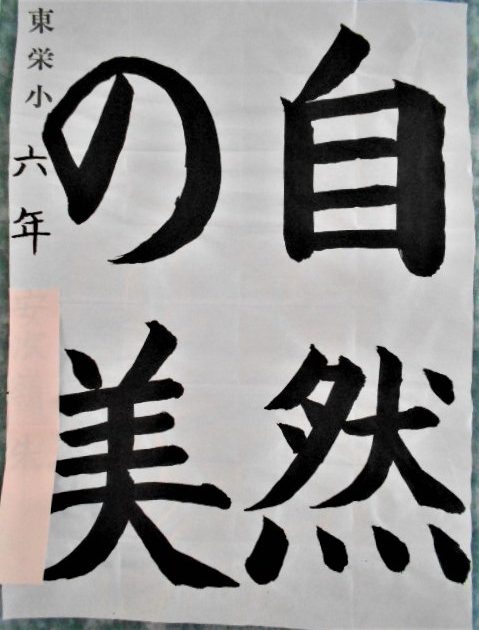 自然
の美
東栄小 六年